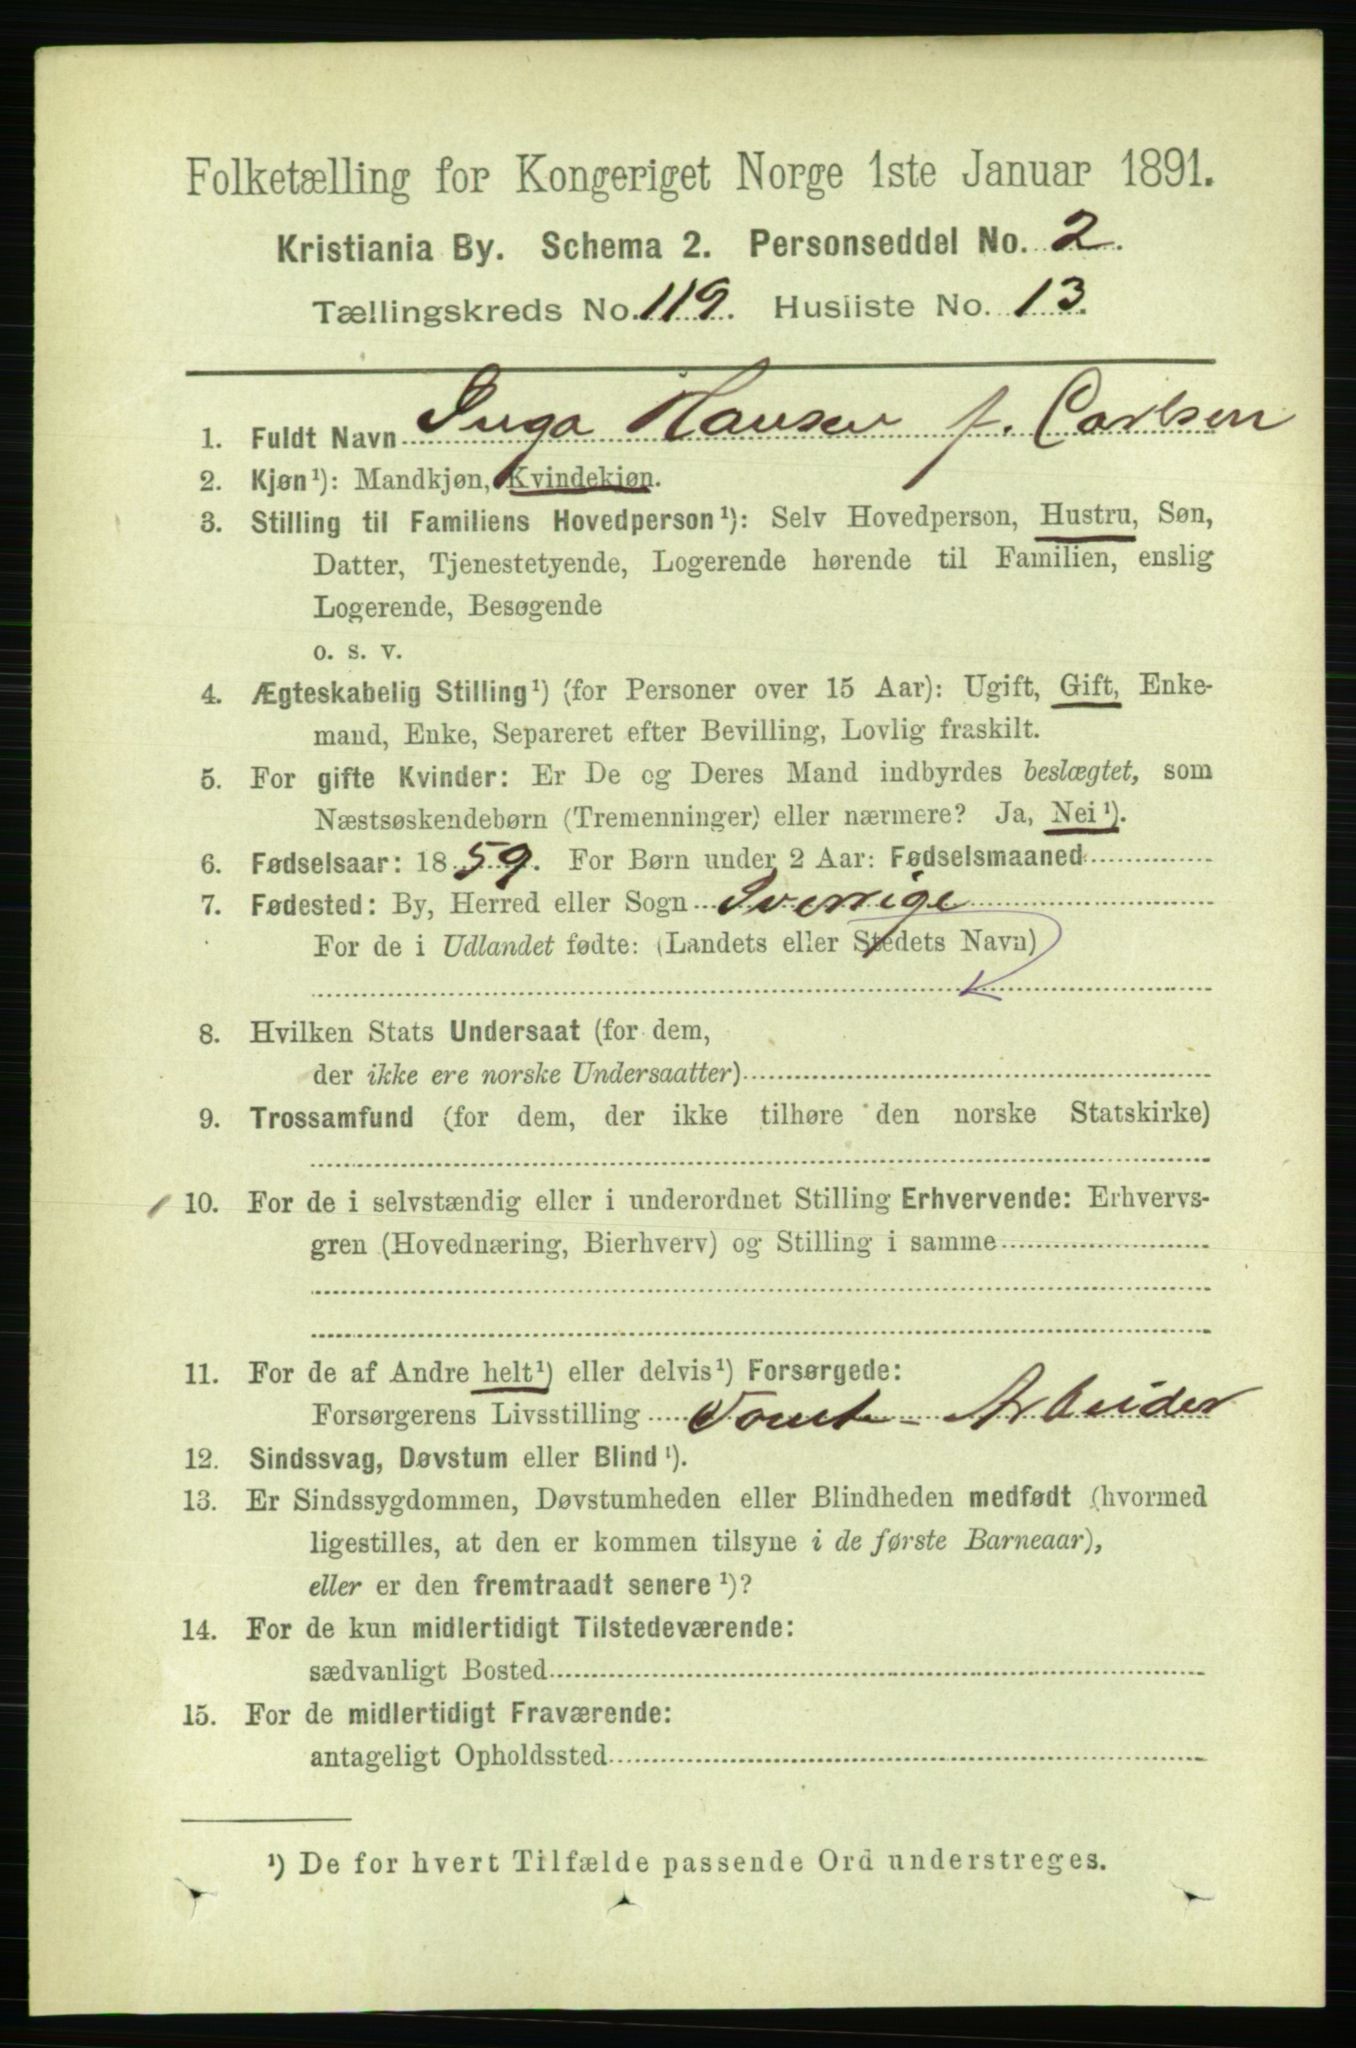 Folketælling for Kongeriget Norge 1ste Januar 1891.
Kristiania By. Schema 2. Personseddel No. 2.
Tællingskreds No. 119. Husliste No. 13.
1. Fuldt Navn Inga Hansen f. Carlsen
2. Kjøn¹): Mandkjøn, Kvindekjøn.
3. Stilling til Familiens Hovedperson¹): Selv Hovedperson, Hustru, Søn,
Datter, Tjenestetyende, Logerende hørende til Familien, enslig
Logerende, Besøgende
o. s. v.
4. Ægteskabelig Stilling¹) (for Personer over 15 Aar): Ugift, Gift, Enke-
mand, Enke, Separeret efter Bevilling, Lovlig fraskilt.
5. For gifte Kvinder: Er De og Deres Mand indbyrdes beslægtet, som
Næstsøskendebørn (Tremenninger) eller nærmere? Ja, Nei¹).
6. Fødselsaar: 1859. For Børn under 2 Aar: Fødselsmaaned
7. Fødested: By, Herred eller Sogn Sverrige
For de i Udlandet fødte: (Landets eller Stedets Navn)
8. Hvilken Stats Undersaat (for dem,
der ikke ere norske Undersaatter)
9. Trossamfund (for dem, der ikke tilhøre den norske Statskirke)
10. For de i selvstændig eller i underordnet Stilling Erhvervende: Erhvervs-
gren (Hovednæring, Bierhverv) og Stilling i samme
11. For de af Andre helt¹) eller delvis¹) Forsørgede:
Forsørgerens Livsstilling Tomt-Arbeider
12. Sindssvag, Døvstum eller Blind¹).
13. Er Sindssygdommen, Døvstumheden eller Blindheden medfødt (hvormed
ligestilles, at den er kommen tilsyne i de første Barneaar),
eller er den fremtraadt senere¹)?
14. For de kun midlertidigt Tilstedeværende:
sædvanligt Bosted
15. For de midlertidigt Fraværende:
antageligt Opholdssted
¹) De for hvert Tilfælde passende Ord understreges.